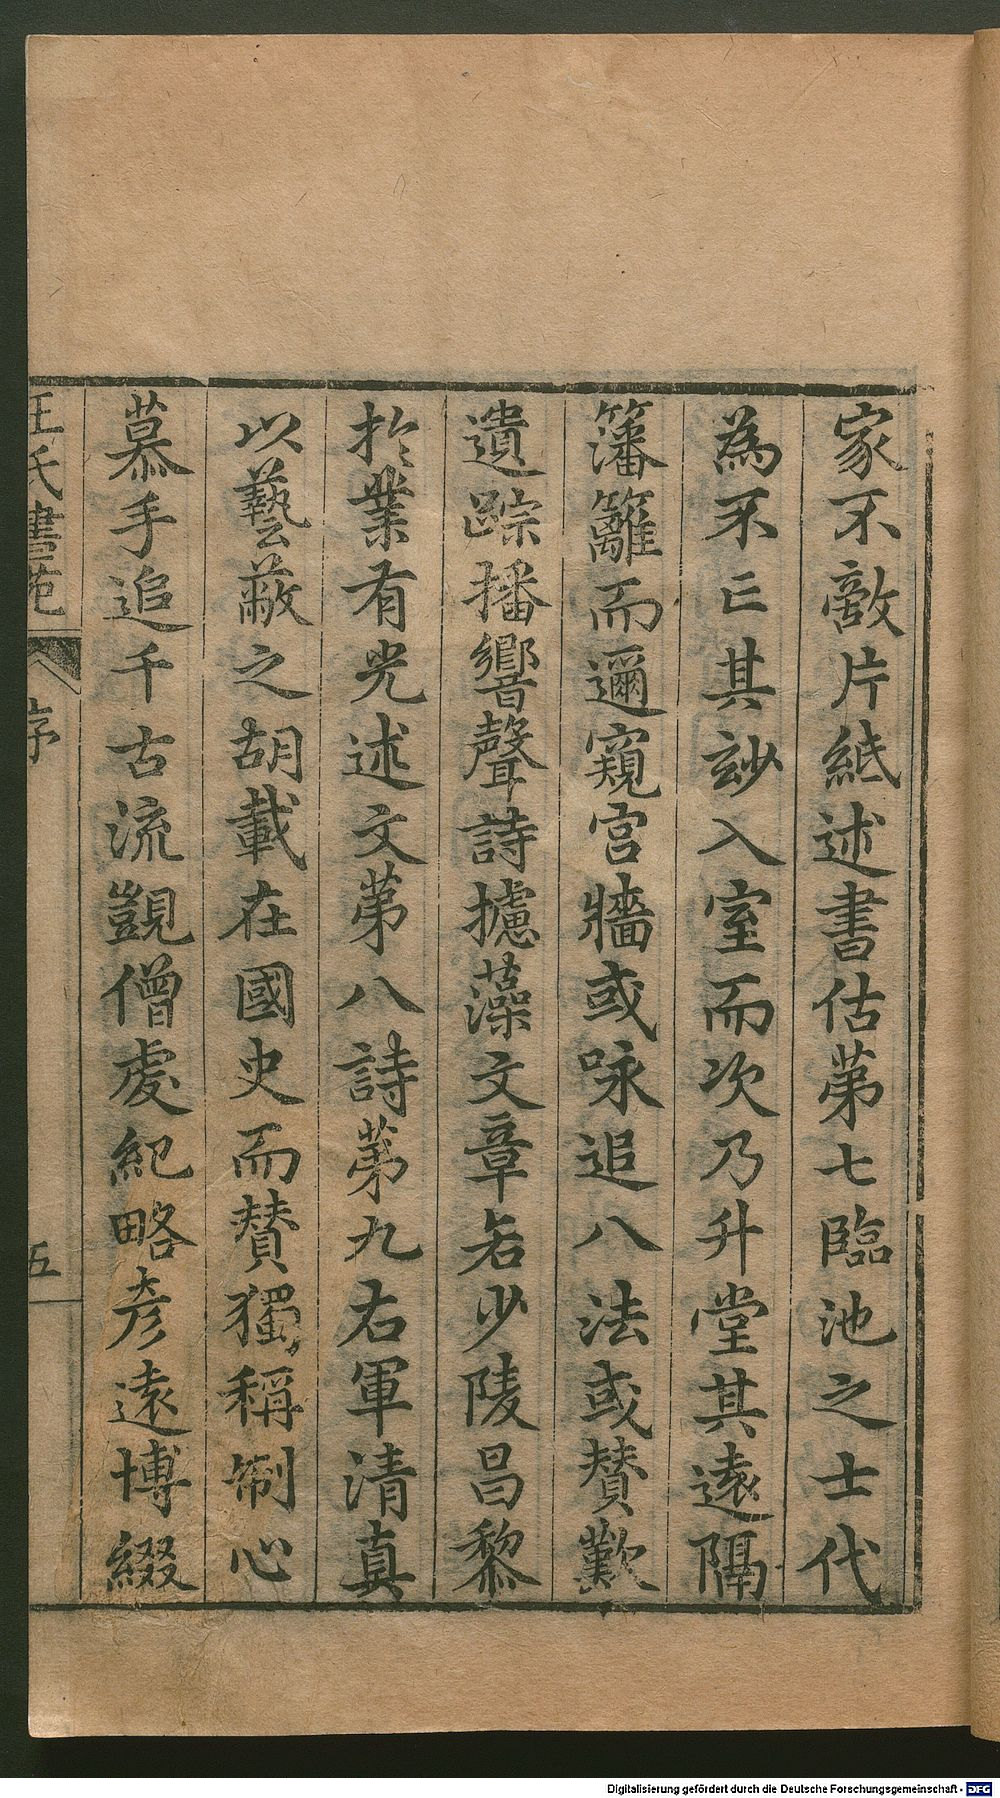 家不敵片紙述書估第七臨池之士代
為不亡其玅入室而次乃升堂其遠隔
籓籬而邇窺宫牆或咏追八法或賛歎
遺踪播響聲詩攄藻文章若少陵昌黎
於業有光述文第八詩第九右軍清真
以藝蔽之胡載在國史而賛獨稱制心
慕手追千古流觀僧䖍紀略彦遠博綴
王氏書苑
序
五
Digitalisierung gefördert durch die Deutsche Forschungsgemeinschaft - DFG